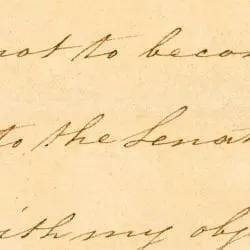 not to becom
to the Senat
ith my obj